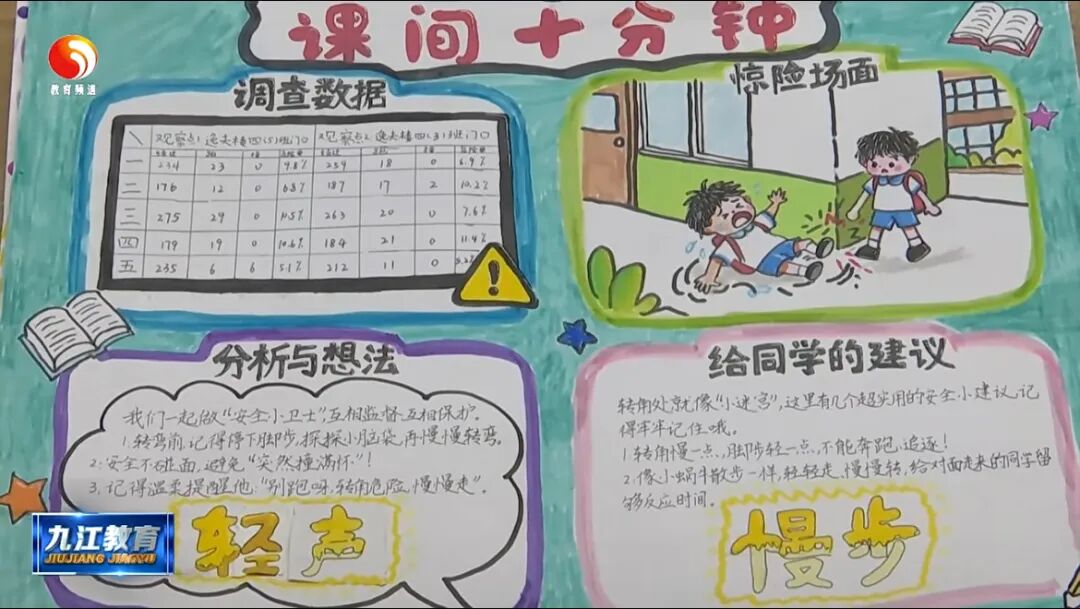 课间十分钟
教育频道
调查数据
惊险场面
观察点1 逸夫楼四(5)班门口 观察点2 逸夫楼四(3)班门口
一 234 23 0 9.8% 259 18 0 6.9%
二 176 12 0 6.8% 187 17 2 10.2%
三 275 29 0 10.5% 263 20 0 7.6%
四 179 19 0 10.6% 184 21 0 11.4%
五 235 6 6 5.1% 212 11 0
!
分析与想法
我们一起做“安全小卫士”,互相监督,互相保护。
1.转弯前,记得停下脚步,探探小脑袋,再慢慢转弯。
2.安全不碰面,避免“突然撞满怀”!
3.记得温柔提醒他:“别跑呀,转角危险,慢慢走”。
轻声
给同学的建议
转角处就像“小迷宫”,这里有几个超实用的安全小建议,记
得牢牢记住哦。
1.转角慢一点,脚步轻一点,不能奔跑、追逐!
2.像小蜗牛散步一样,轻轻走、慢慢转,给对面走来的同学留
够反应时间。
慢步
九江教育
JIUJIANG JIAOYU